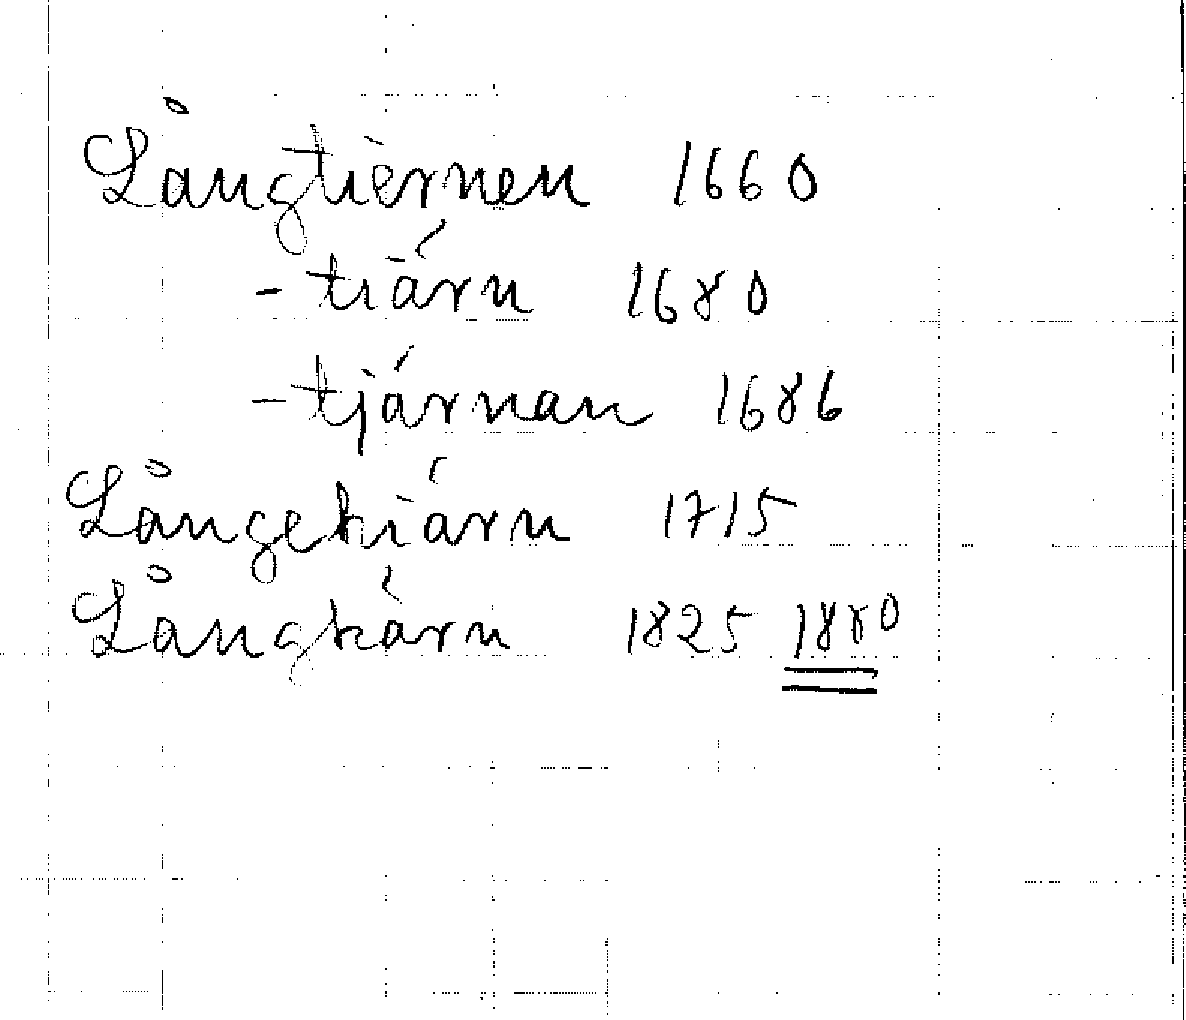 Långtiernen 1660
-tiárn 1680
-tjárnan 1686
Långekiárn 1715
Långkárn 1825 1880